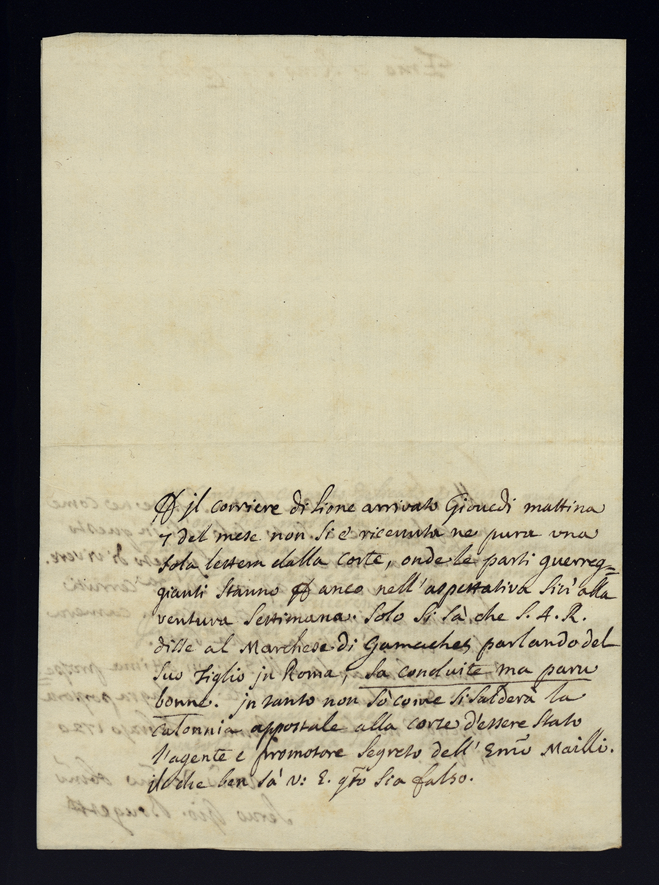 il corriere di Lione arrivato Giovedì mattina
7 del mese non si è ricevuta ne pure una
sola lettera dalla Corte, onde le parti guerreg=
gianti stanno anco nell'aspettativa sin'alla
ventura settimana. Solo si sà che S. A. R.
disse al Marchese di Gamaches parlando del
suo figlio jn Roma, sa conduite ma paru
bonne. jn tanto non sò come si salderà la
calonnia appostale alla corte d'essere stato
l'agente e promotore segreto dell' Em̃o Mailli.
ilche ben sà V: E. q̃to sia falso.